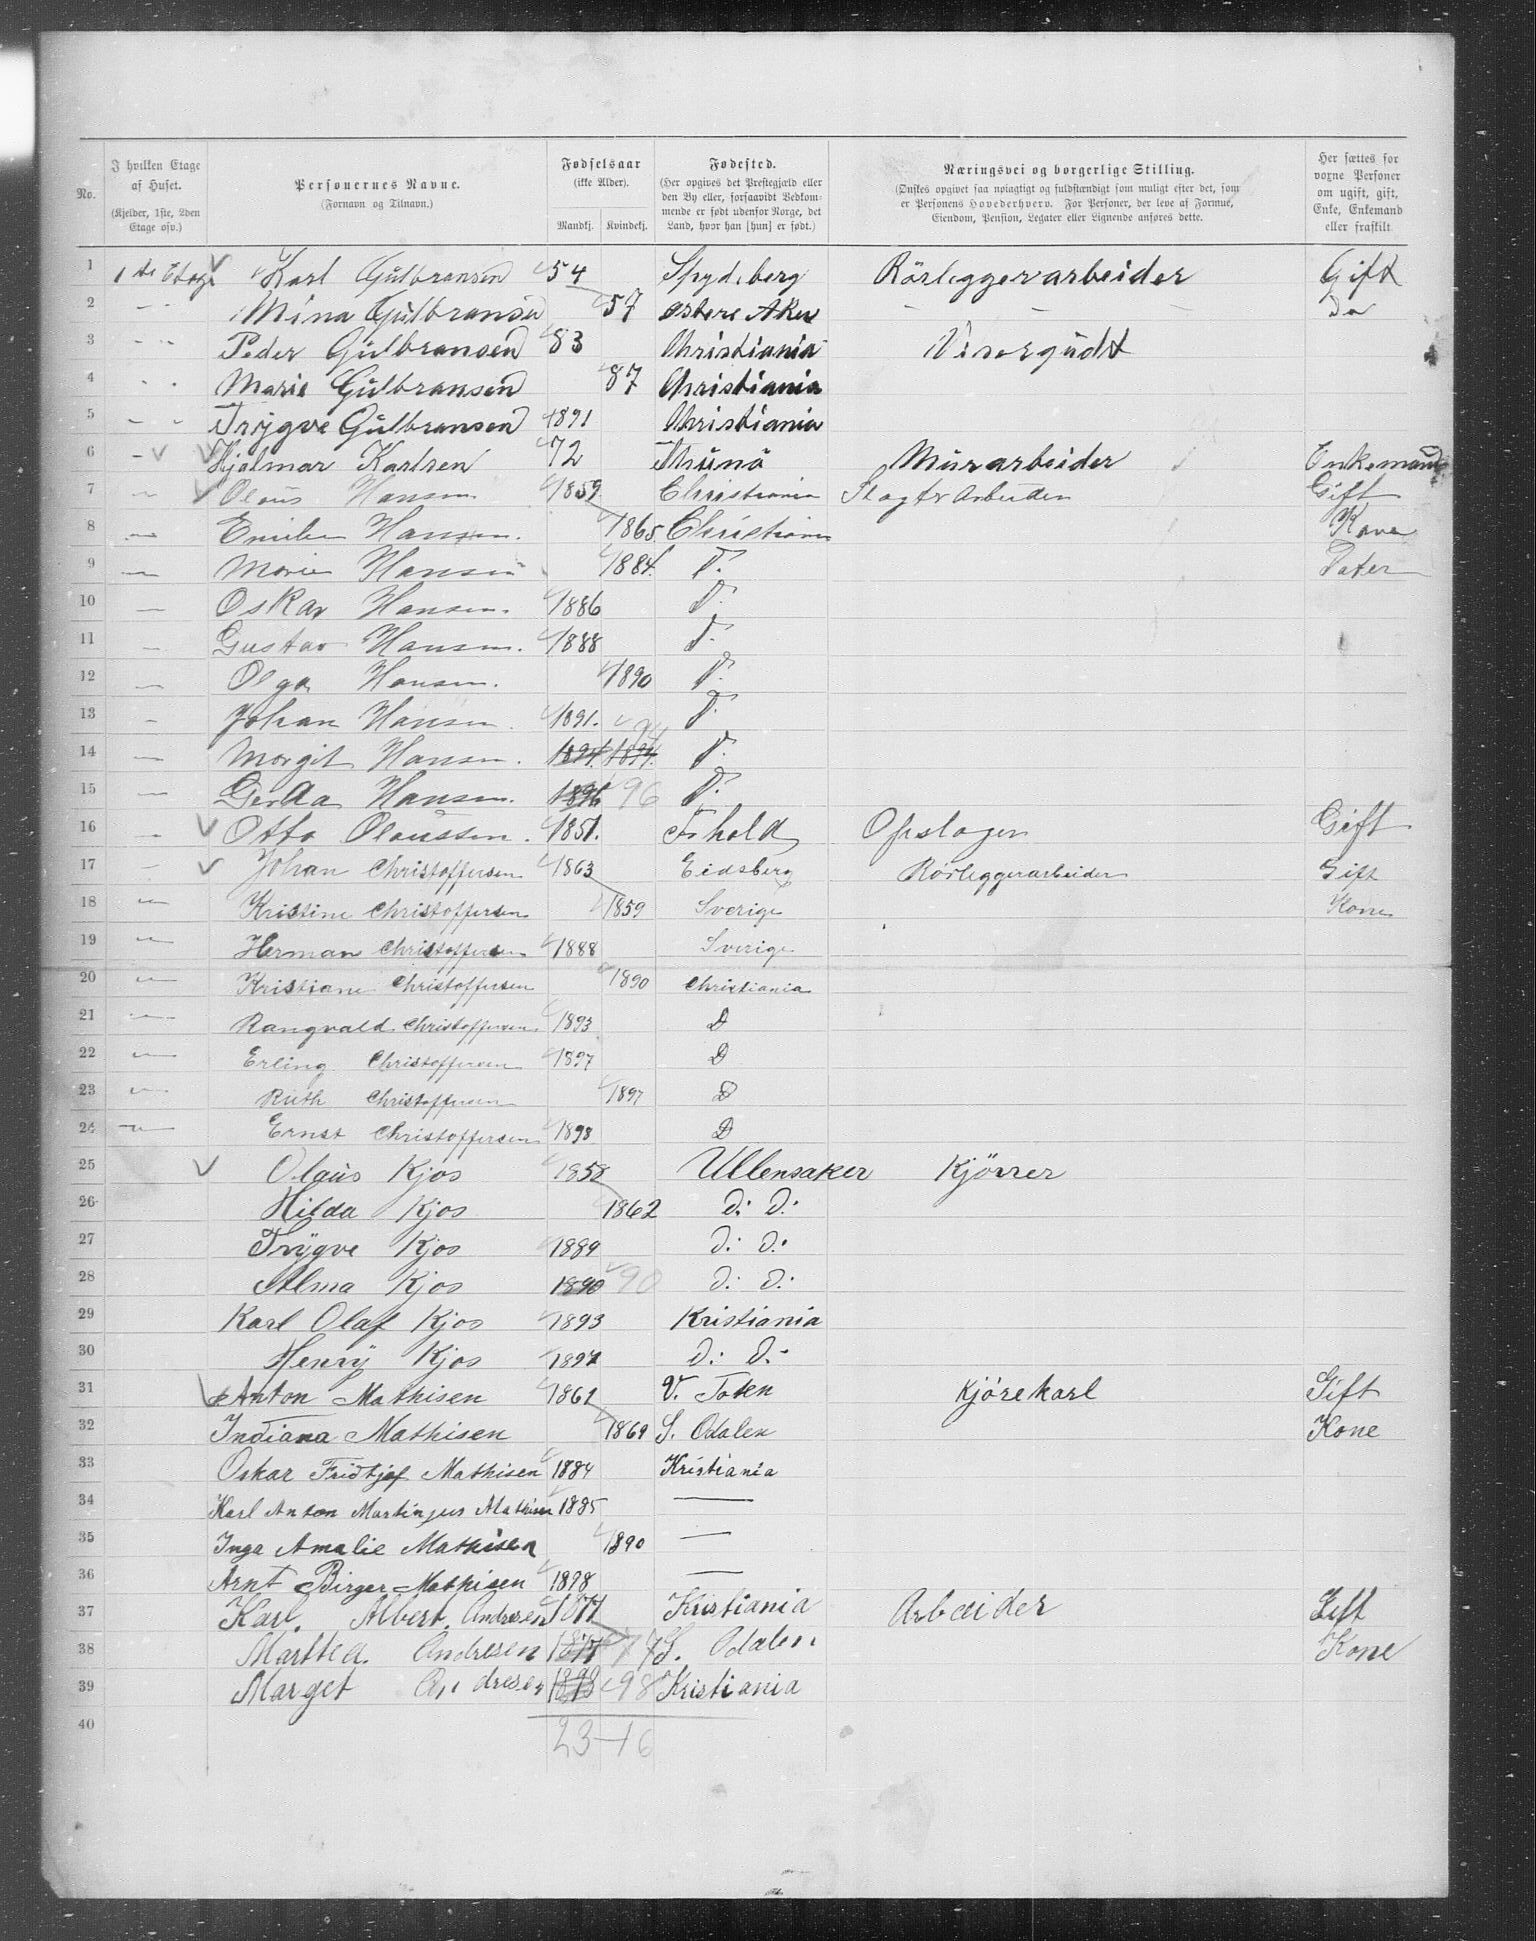 No. I hvilken Etage af Huset. (Kjelder, 1ste, 2den Etage osv.) Personernes Navne. (Fornavn og Tilnavn.) Fødselsaar (ikke Alder). Mandkj. Kvindekj. Fødested. (Her opgives det Prestegjæld eller den By eller, forsaavidt Vedkommende er født udenfor Norge, det Land, hvor han [hun] er født.) Næringsvei og borgerlige Stilling. (Ønskes opgivet saa nøiagtigt og fuldstændigt som muligt efter det, som er Personens Hovederhverv. For Personer, der leve af Formue, Eiendom, Pension, Legater eller Lignende anføres dette. Her sættes for voxne Personer om ugift, gift, Enke, Enkemand eller fraskilt
1 1ste Etage Karl Gulbransen 54 Spydeberg Rörleggerarbeider Gift
2 - - Mina Gulbransen 57 østere Aker - - - Do
3 - - Peder Gulbransen 83 Christiania Visergudt
4 - - Marie Gulbransen 87 Christiania
5 - - Trygve Gulbransen 1891 Christiania
6 - Hjalmar Karlsen 72 Murarbeider Enkemand
7 - Olaus Hansen 1859 Christiania Slagter Arbeider Gift
8 - Emilie Hansen. 1865. Christiania Kone
9 - Marie Hansen 1884. D.
10 - Oskar Hansen. 1886 D.
11 - Gustav Hansen. 1888 D.
12 - Olga Hansen. 1890 D.
13 - Johan Hansen 1891. D.
14 - Margit Hansen. 1894. 1894. 94 D.
15 - Gerda Hansen. 1896 96 D.
16 - Otto Olaussen. 1851. Gift
17 - Johan Christoffersen 1863 Eidsberg Rörleggerarbeider Gift
18 - Kristine Christoffersen 1859 Sverige Kone
19 - Herman Christoffersen 1888 Sverige
20 - Kristiane Christoffersen 1890 Christiania
21 - Rangvald Christoffersen 1893 D
22 - Erling Christoffersen 1897 D
23 - Ruth Christoffersen 1897 D
24 - Ernst Christoffersen 1898 D
25 Olaus Kjos 1858 Ullensaker Kjörrer
26 Hilda Kjos 1862 D: D:
27 Trygve Kjos 1889 D: D:
28 Alma Kjos 1890 90 D: D:
29 Karl Olaf Kjos 1893 Kristiania
30 Henry Kjos 1897 D: D:
31 Anton Mathisen 1861 V. Toten Kjörekarl Gift
32 Indiana Mathisen 1869 S. Odalen Kone
33 Oskar Fridtjof Mathisen 1884 Kristiania
34 Karl Anton Martinjus Mathisen 1885 —
35 Inga Amalie Mathisen 1890 —
36 Arnt Birger Mathisen 1898 —
37 Karl. Albert. Andresen 1877 Kristiania Arbeider Gift
38 Marthea. Andresen 1877 77 S. Odalen Kone
39 Marget Andresen 1898 98 Kristiania
40 23-16